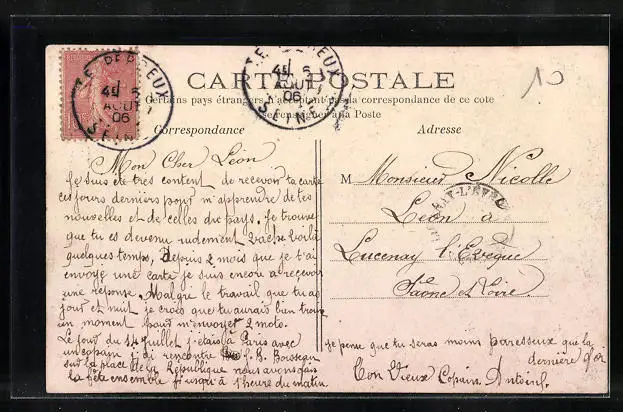 CARTE POSTALE
Certains pays étrangers n'acceptant pas la correspondance de ce côté
se renseigner à la Poste
Correspondance
Adresse
LE PERREUX
6
AOUT
06
SEINE
LE PERREUX
6
AOUT
06
SEINE
10
Mon Cher Léon
Je suis été tres content de recevoir ta carte
ces jours derniers pour m'apprendre de tes
nouvelles et de celles du pays. Je trouve
que tu es devenu rudement vache voilà
quelques temps, Depuis 2 mois que je t'ai
envoyé une carte je suis encore a recevoir
une réponse. Malgré le travail que tu as
jour et nuit je crois que tu aurais bien trouvé
un moment pour m'envoyer 2 mots.
Le jour du 14 juillet j'etais à Paris avec
un copain j'ai rencontré
sur la place de la République nous avons fais
la fête ensemble jusqu'à 1 heure du matin.
je pense que tu seras moins paresseux que la
dernière fois
Ton Vieux Copain Antoine.
M Monsieur Nicolle
Léon à
Lucenay l'Evêque
Saône et Loire.